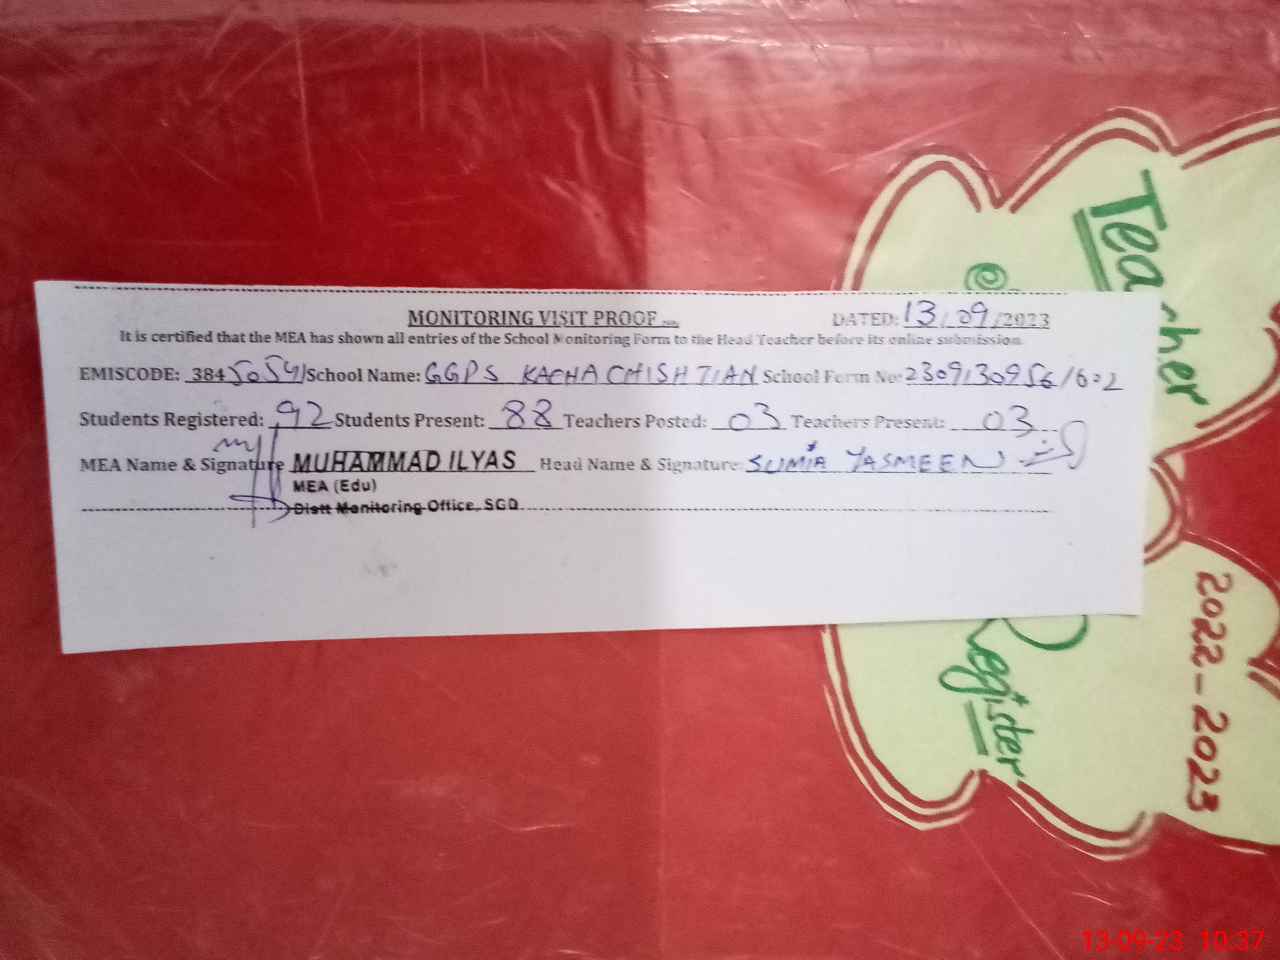 MONITORING VISIT PROOF
DATED: 13/09/2023
It is certified that the MEA has shown all entries of the School Monitoring Form to the Head Teacher before its online submission.
EMISCODE: 384 School Name: GGPS KACHA CHISHTIAN School Form No:
Students Registered: 92 Students Present: 88 Teachers Posted: 03 Teachers Present: 03
MEA Name & Signature MUHAMMAD ILYAS Head Name & Signature: SUMIA YASMEEN
MEA (Edu)
Distt Monitoring Office, SGD
Teacher
Register
2022-2023
13-09-23 10:37